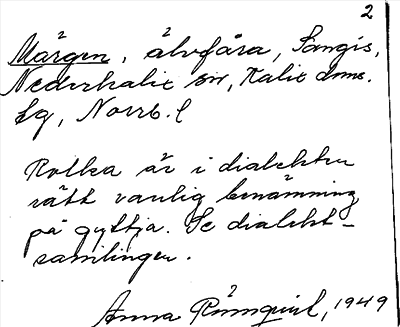 2
Mårgen, älvfåra, Sangis,
Nederkalix sn, Kalix dms.
lg, Norrb. l
Rolka är i dialekten
rätt vanlig benämning
på gyttja. Se dialekt-
samlingen.
Anna Rönnqvist, 1949